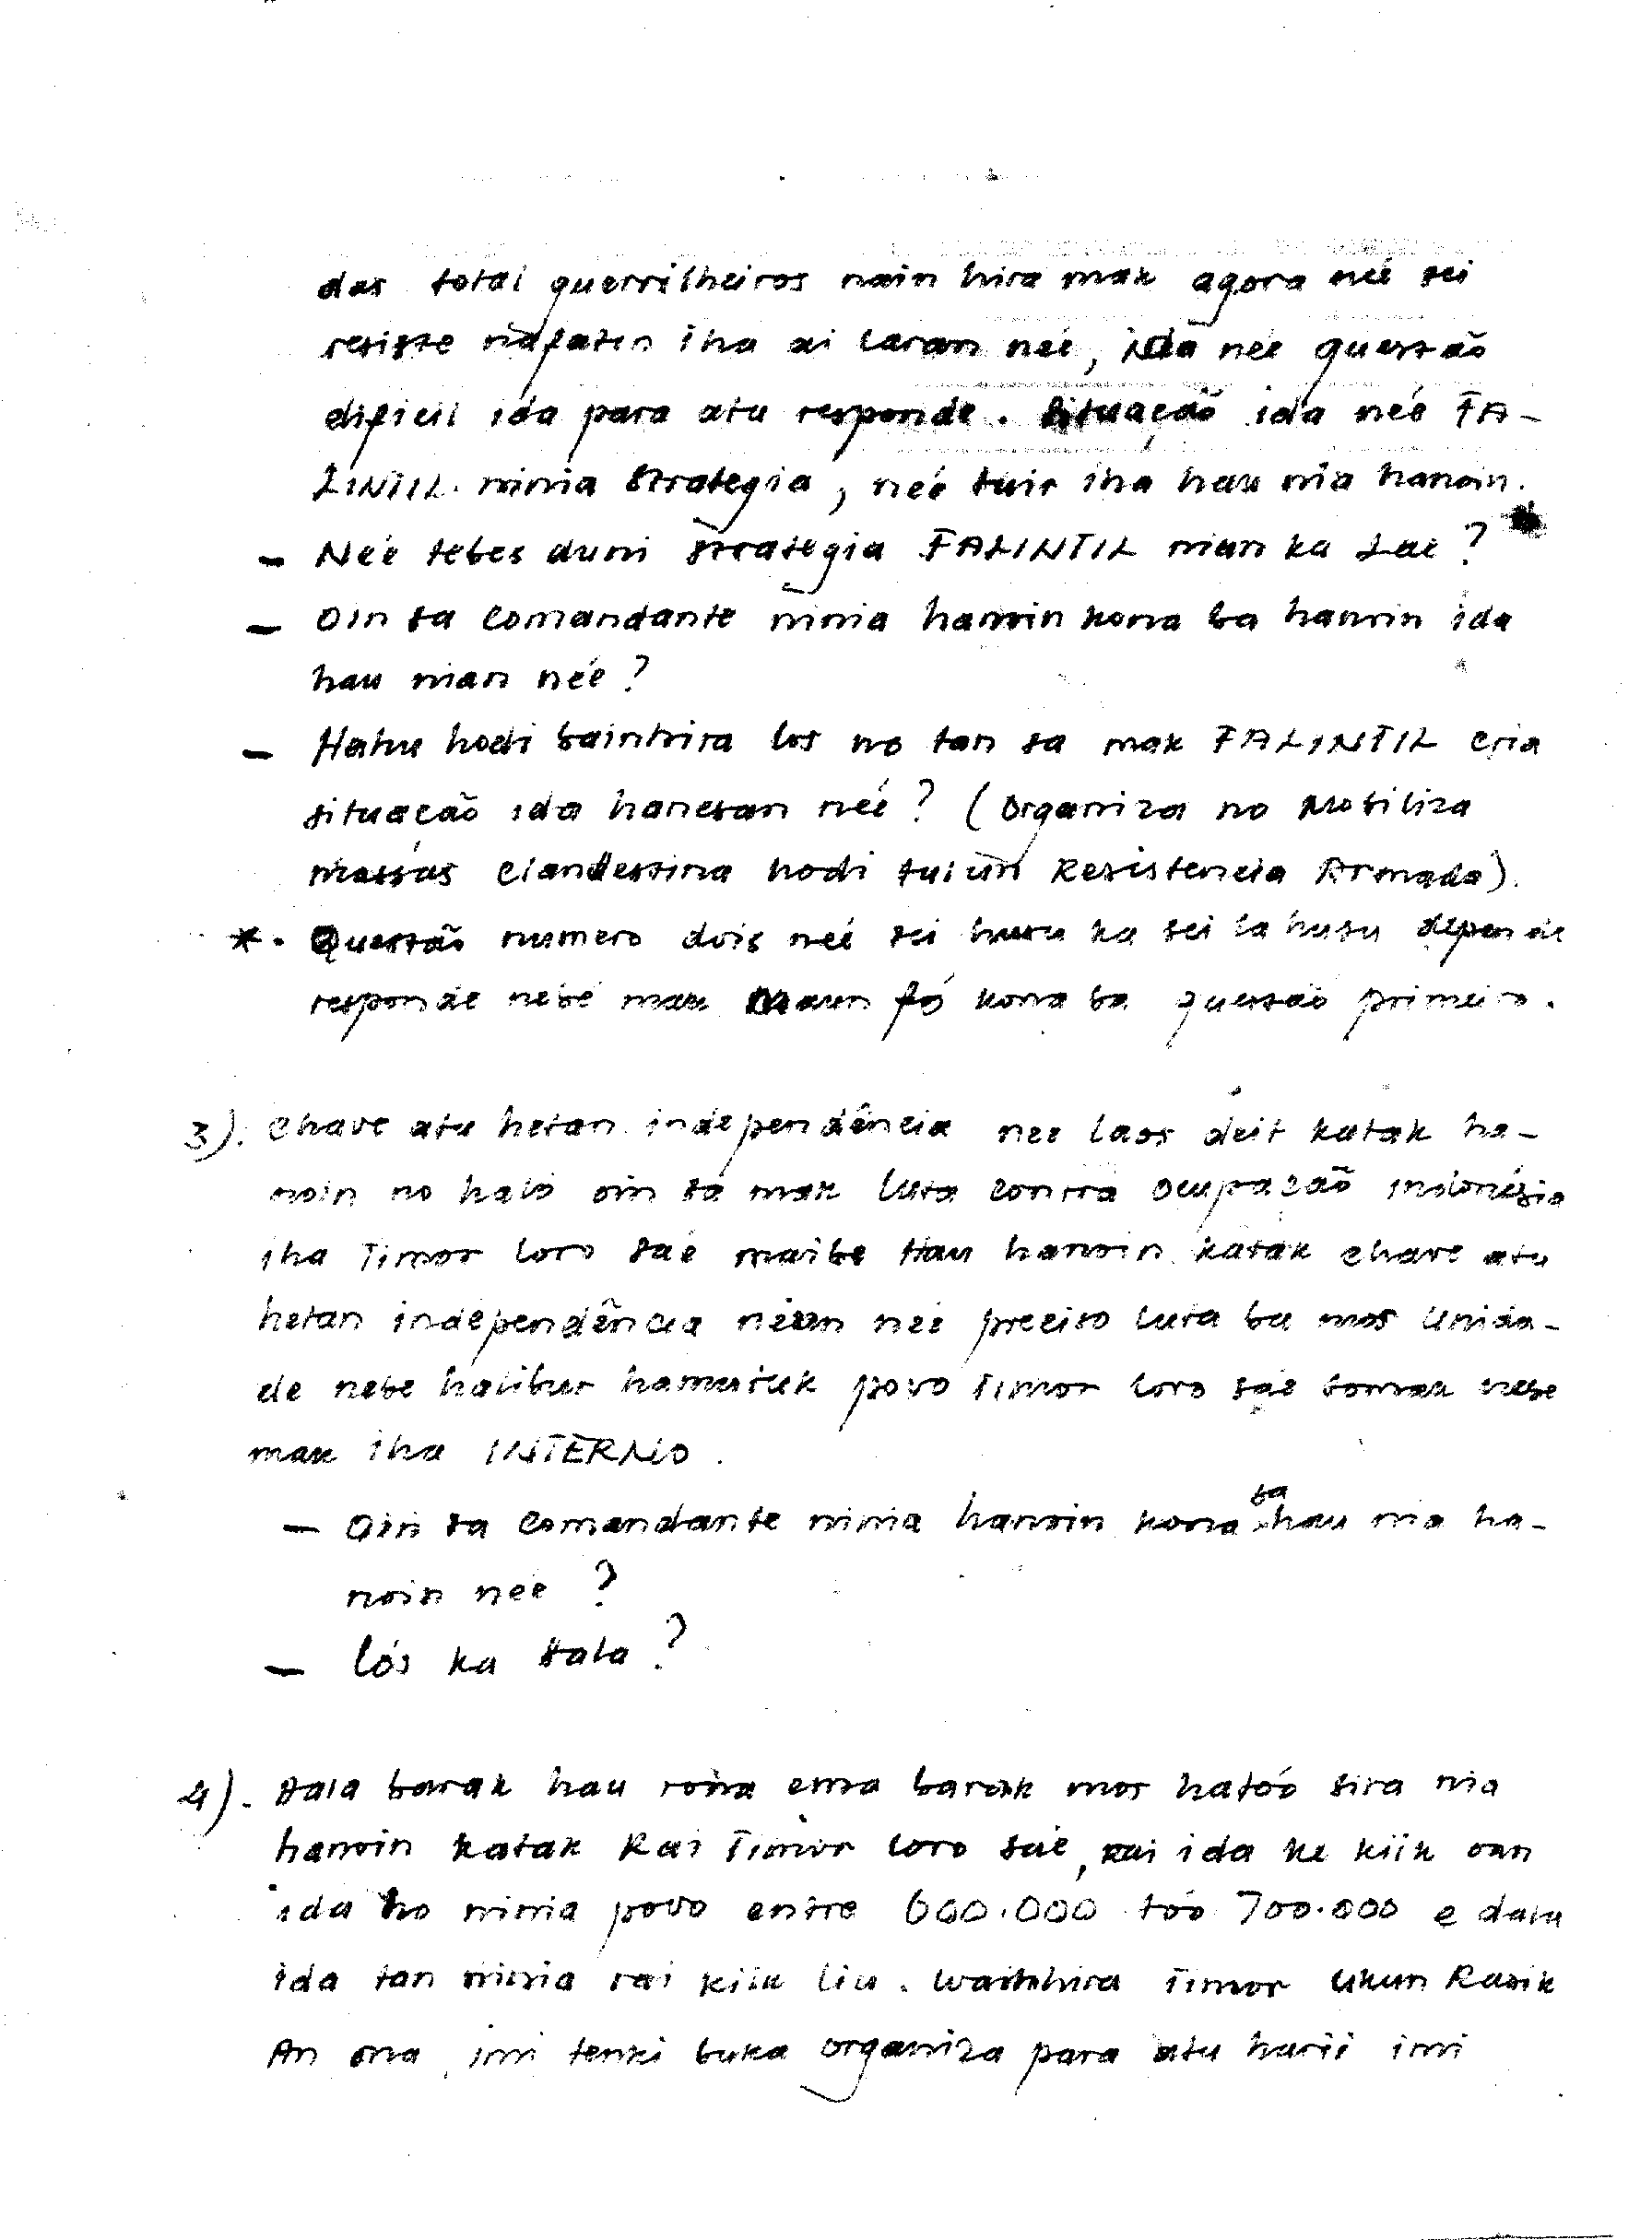 das total guerrilheiros nain hira mak agora neé sei
resiste nafatin iha ai laran neé, ida neé questão
dificil ida para atu responde. Situação ida neé FA-
LINTIL ninia Strategia, neé tuir iha hau nia hanoin.
- Neé tebes duni strategia FALINTIL nian ka Lae?
- Oin sa Comandante ninia hanoin kona ba hanoin ida
hau nian neé?
- Hahu hodi bainhira los no tan sa mak FALINTIL cria
situação ida hanesan neé? (Organiza no Mobiliza
massas Clandestina hodi tulun Resistencia Armada).
*. Questão numero dois neé sei husu ka sei la husu depende
responde nebé mak Maun fó kona ba questão primeiro.
3). Chave atu hetan independência neé laos deit katak ha-
noin no haló oin sá mak luta contra Ocupação indonésia
iha Timor Loro Saé maibe Hau hanoin katak chave atu
hetan independência neé preciso luta ba mos Unida-
de nebe halibur hamutuk povo Timor Loro Saé tomak nebe
mak iha INTERNO.
- Oin sa Comandante ninia hanoin kona ba hau nia ha-
noin neé?
- Lós ka Sala?
4). Dala barak hau rona ema barak mos hatóo sira nia
hanoin katak Rai Timor Loro Saé, rai ida ke kiik oan
ida ho ninia povo entre 600.000 tóo 700.000 e dala
ida tan ninia rai kiik liu. Wainhira Timor Ukun Rasik
An ona, imi tenki buka organiza para atu harii imi